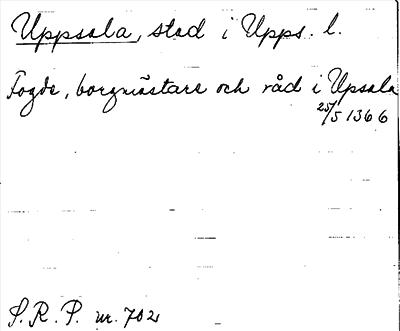 Uppsala, stad i Upps. l.
Fogde, borgmästare och råd i Upsala
25/5 1366
S.R.P. nr. 702